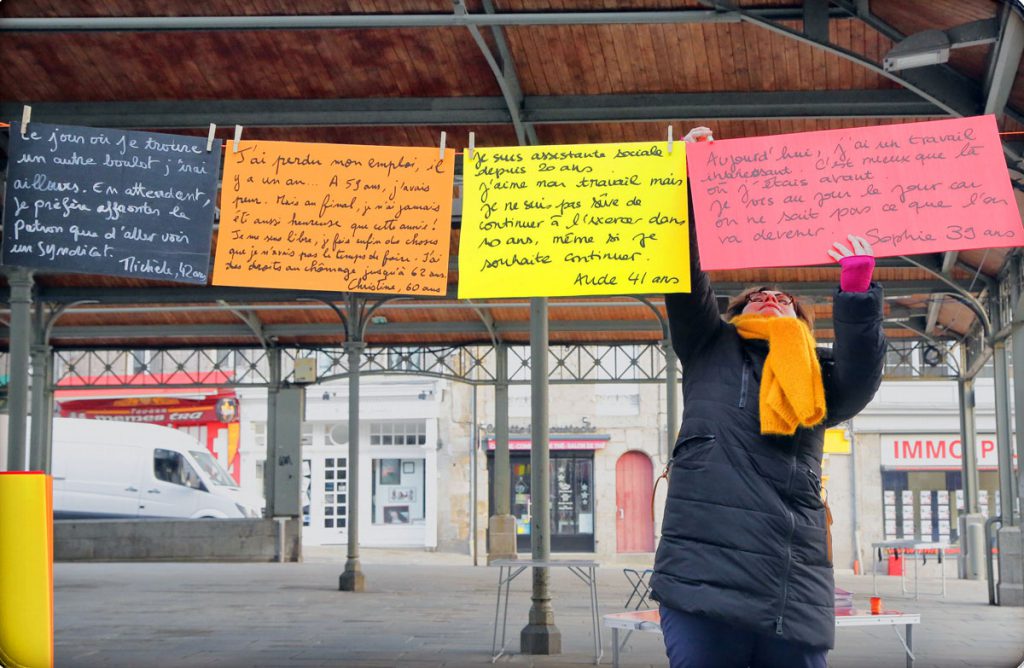 Le jour où je trouve
un autre boulot ; j'irai
ailleurs. En attendant,
je préfère affronter la
patron que d'aller voir
un Syndicat.
Michèle, 42 ans
J'ai perdu mon emploi, il
y a un an... A 59 ans, j'avais
peur. Mais au final, je n'ai jamais
été aussi heureuse que cette année !
Je me sens libre, j'y fais enfin des choses
que je n'avais pas le temps de faire. J'ai
des droits au chômage jusqu'à 62 ans.
Christine, 60 ans
Je suis assistante sociale
depuis 20 ans.
J'aime mon travail mais
je ne suis pas sûre de
continuer à l'exercer dans
10 ans, même si je
souhaite continuer.
Aude 41 ans
Aujourd'hui, j'ai un travail
intéressant. C'est mieux que là
où j'étais avant.
Je vis au jour le jour car
on ne sait pas ce que l'on
va devenir.
Sophie 39 ans
IMMO P